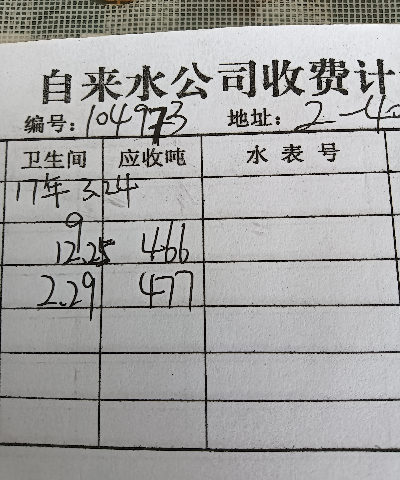 自来水公司收费计
编号: 104973 地址: 2-40
卫生间 应收吨 水表号
17年 3.24
9
12.25 466
2.29 477